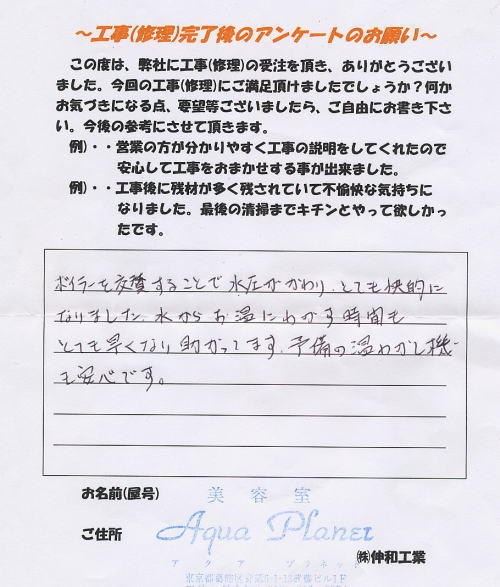 ～工事(修理)完了後のアンケートのお願い～
この度は、弊社に工事(修理)の受注を頂き、ありがとうござい
ました。今回の工事(修理)にご満足頂けましたでしょうか？何か
お気づきになる点、要望等ございましたら、ご自由にお書き下さ
い。今後の参考にさせて頂きます。
例)・・営業の方が分かりやすく工事の説明をしてくれたので
安心して工事をおまかせする事が出来ました。
例)・・工事後に残材が多く残されていて不愉快な気持ちに
なりました。最後の清掃までキチンとやって欲しかっ
たです。
ボイラーを交換することで水圧がかわり、とても快適に
なりました。水からお温にわかす時間も
とても早くなり助かってます。予備の温わかし機
も安心です。
お名前(屋号)
美容室
ご住所
Aqua Planet
アクア プラネット
㈱伸和工業
東京都葛飾区